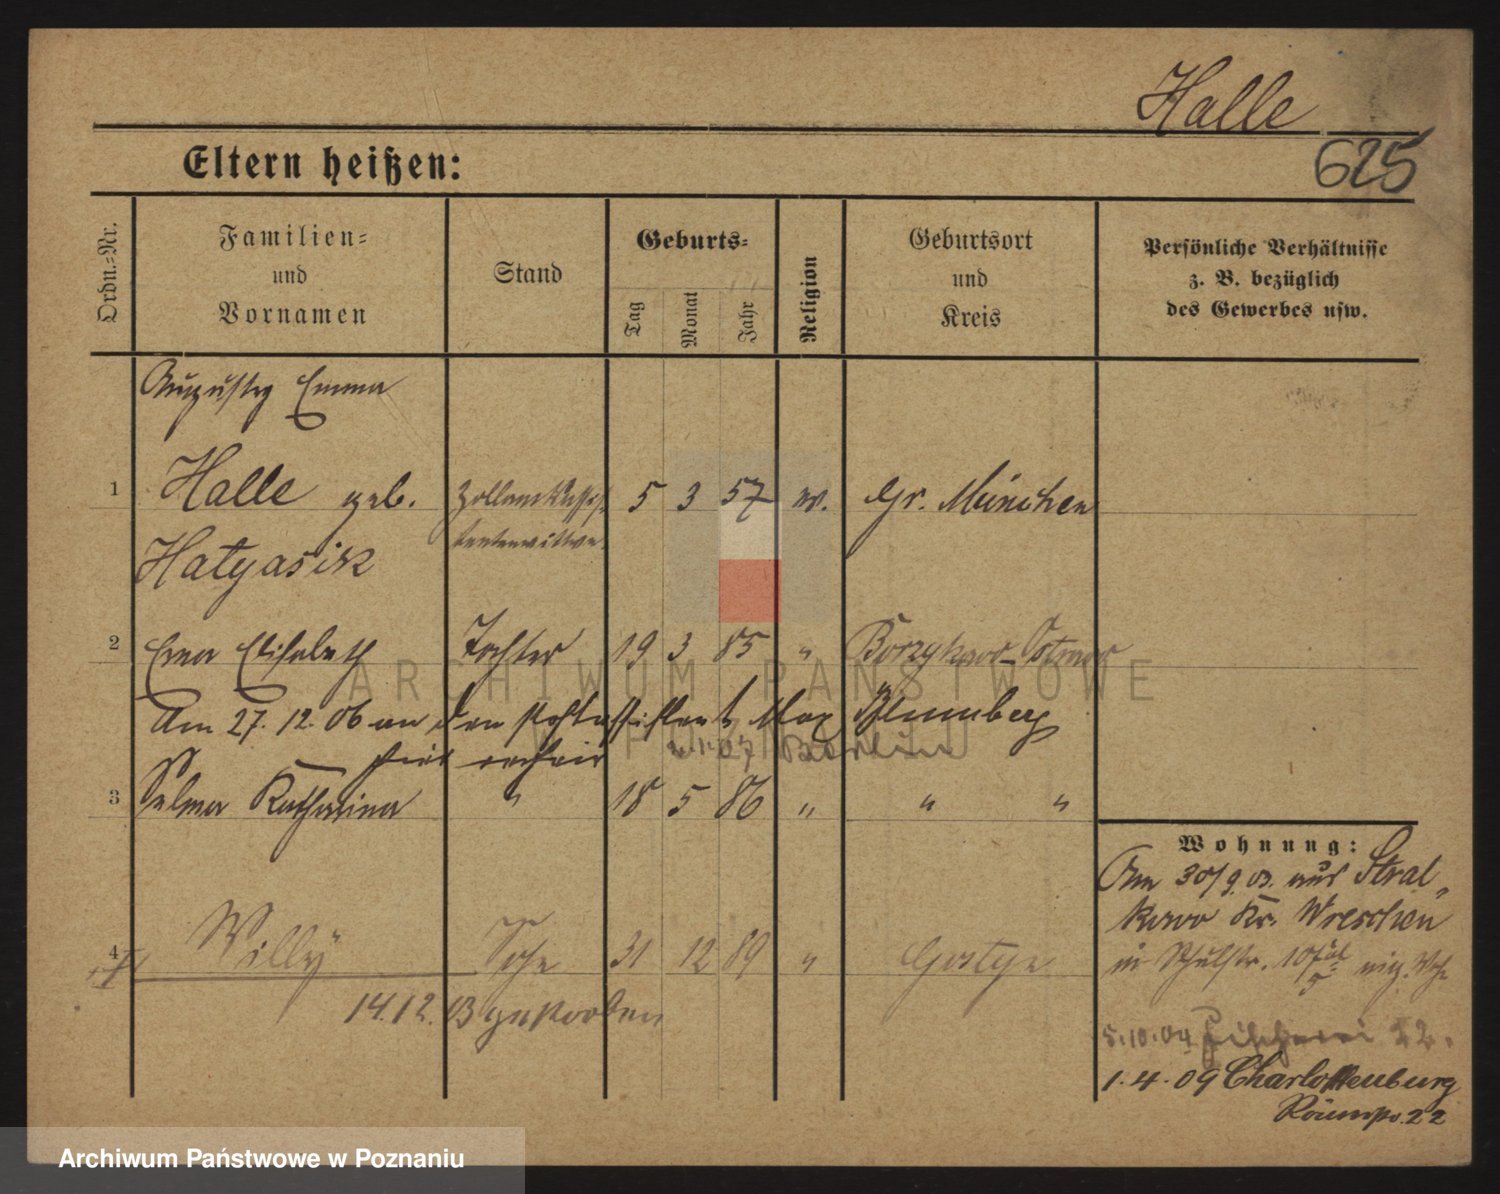 Halle
625
Eltern heißen:
Ordn.-Nr.
Familien-
und
Vornamen
Stand
Geburts-
Tag
Monat
Jahr
Religion
Geburtsort
und
Kreis
Persönliche Verhältnisse
z. B. bezüglich
des Gewerbes usw.
Emma
1 Halle geb. 5 3 57 Gr. München
Hatyasik
2 Elisabeth Tochter 19 3 85 "
Am 27. 12. 06 an den Postassistent Max Blumberg
07 Berlin
3 Selma Katharina " 18 5 86 " " "
Wohnung:
Am 30/9.03. aus Stral-
kowo Kr. Wreschen
in Schulstr. 10
4 Willy Sohn 31 12 89 "
14.12. 03 gestorben
5.10.04 Fischerei 22.
1.4.09 Charlottenburg
22
ARCHIWUM PAŃSTWOWE
W POZNANIU
Archiwum Państwowe w Poznaniu